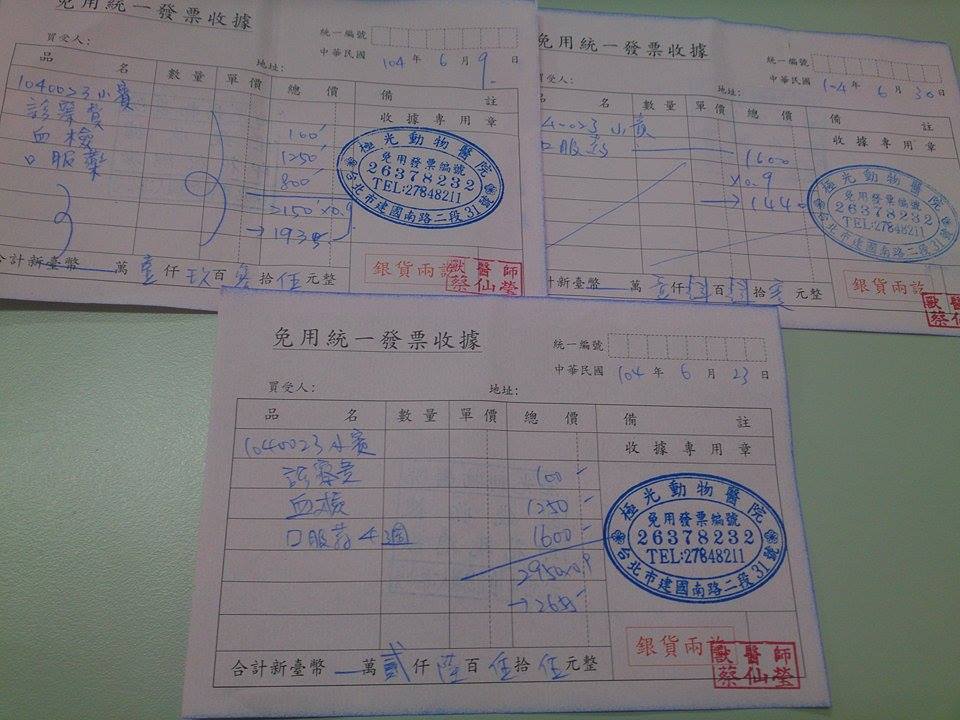 免用統一發票收據
統一編號
中華民國 104 年 6 月 9 日
買受人: 地址:
品 名 數量 單價 總價 備註
1040023小賓 收據專用章
診察費 100
血檢 1250
口服藥 800
2150×0.9
→1935
極光動物醫院
免用發票編號
26378232
TEL:27848211
台北市建國南路二段31號
合計新臺幣 萬壹仟玖百叁拾伍元整
銀貨兩訖
獸醫師
蔡仙瑩
免用統一發票收據
統一編號
中華民國 104 年 6 月 30 日
買受人: 地址:
品 名 數量 單價 總價 備註
40023小賓 收據專用章
口服葯 1600
×0.9
→144
極光動物醫院
免用發票編號
26378232
TEL:27848211
台北市建國南路二段31號
計新臺幣 萬壹仟 百 拾 元整
銀貨兩訖
獸醫
蔡仙
免用統一發票收據
統一編號
中華民國 104 年 6 月 23 日
買受人: 地址:
品 名 數量 單價 總價 備註
1040023小賓 收據專用章
診察費 100
血檢 1250
口服葯4週 1600
2950×0.9
→2655
極光動物醫院
免用發票編號
26378232
TEL:27848211
台北市建國南路二段31號
合計新臺幣 萬貳仟陸百伍拾伍元整
銀貨兩訖
獸醫師
蔡仙瑩